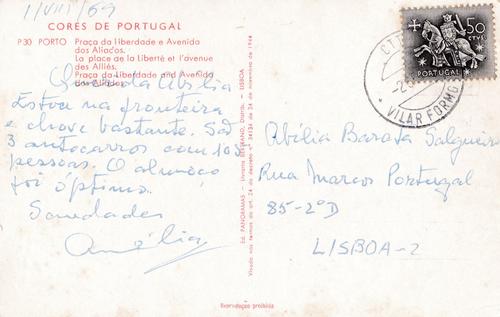 1/VIII/69
CORES DE PORTUGAL
P 30 PORTO Praça da Liberdade e Avenida
dos Aliados.
La place de la Liberté et l'avenue
des Alliés.
Praça da Liberdade and Avenida
dos Aliados.
Querida Abília
Estou na fronteira
e chove bastante. São
3 autocarros com 103
pessoas. O almoço
foi óptimo.
Saudades
Amélia
Ed. PANORAMAS - Livraria BERTRAND, Distrib. - LISBOA
Visado nos termos do art. 24 do decreto n.º 34134 de 24 de novembro de 1944
Reprodução proibida
50
CTVS.
PORTUGAL
CTT
VILAR FORMOSO
Abília Barata Salgueiro
Rua Marcos Portugal
85-2ºD
LISBOA-2